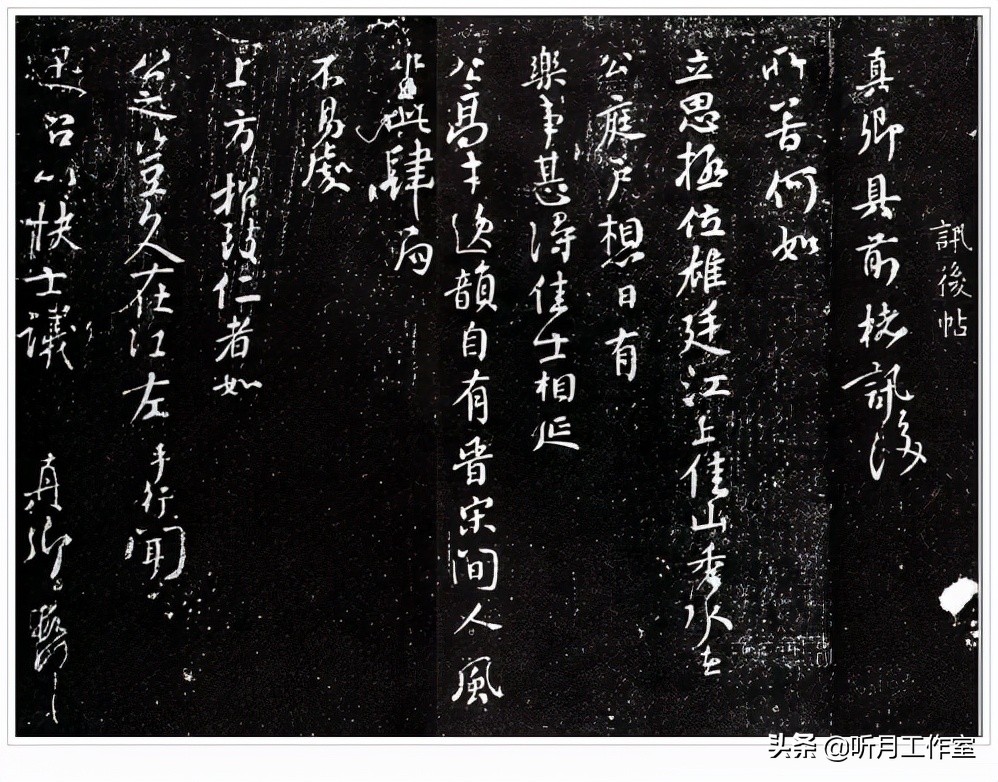 訊後帖
真卿具前楼訊後
所苦何如
立思極位雄廷江上佳山秀水在
公庭户想日有
樂事甚得佳士相延
公高才逸韻自有晋宋间人風
肆局
不易處
上方招致仁者如
公之豈久在江左 手行聞
迅召以快士議 真卿
头条 @听月工作室